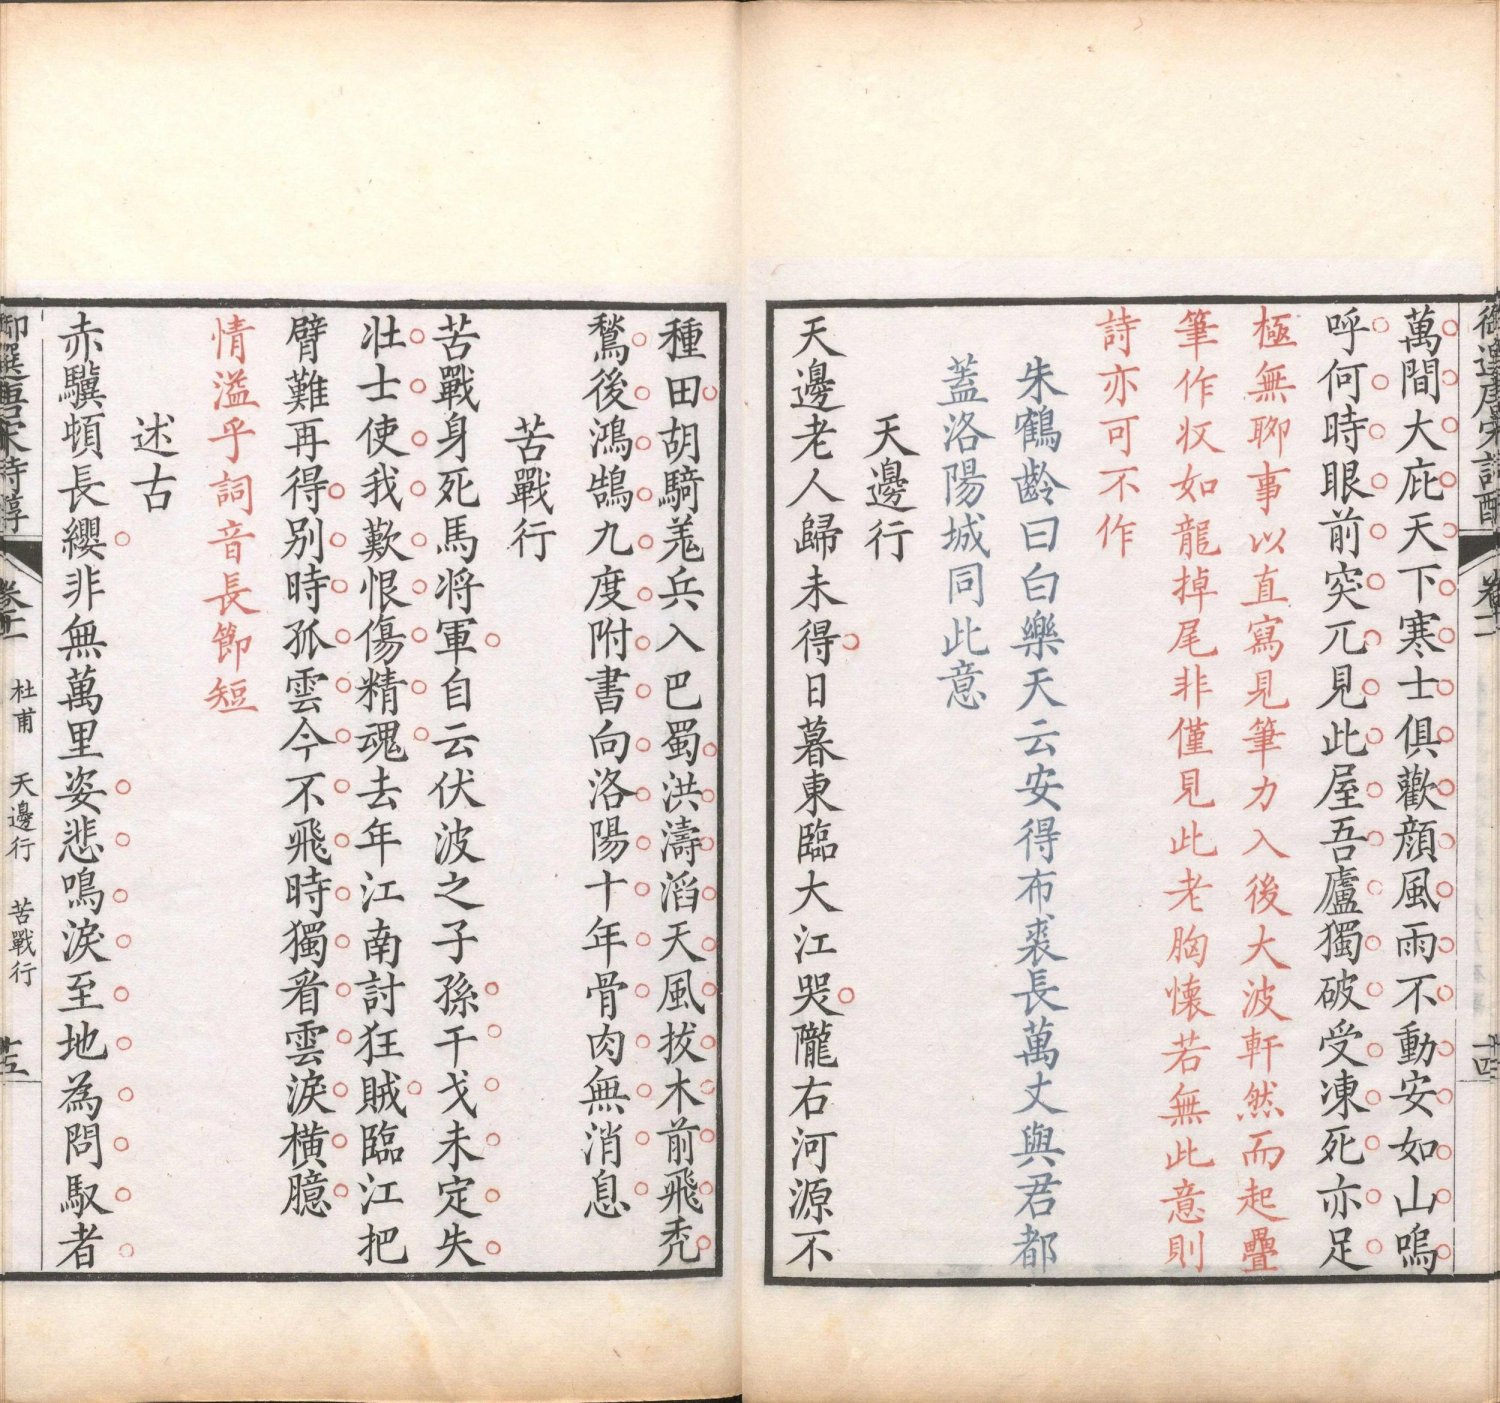 萬間大庇天下寒士俱歡顏風雨不動安如山嗚
呼何時眼前突兀見此屋吾廬獨破受凍死亦足
極無聊事以直寫見筆力入後大波軒然而起疊
筆作収如龍掉尾非僅見此老胸懷若無此意則
詩亦可不作
朱鶴齡曰白樂天云安得布裘長萬丈與君都
蓋洛陽城同此意
天邊行
天邊老人歸未得日暮東臨大江哭隴右河源不
種田胡騎羗兵入巴蜀洪濤滔天風拔木前飛禿
鶖後鴻鵠九度附書向洛陽十年骨肉無消息
苦戰行
苦戰身死馬將軍自云伏波之子孫干戈未定失
壯士使我歎恨傷精魂去年江南討狂賊臨江把
臂難再得別時孤雲今不飛時獨看雲淚橫臆
情溢乎詞音長節短
述古
赤驥頓長纓非無萬里姿悲鳴淚至地為問馭者
御選唐宋詩醇
卷十二
杜甫 天邊行 苦戰行
十五